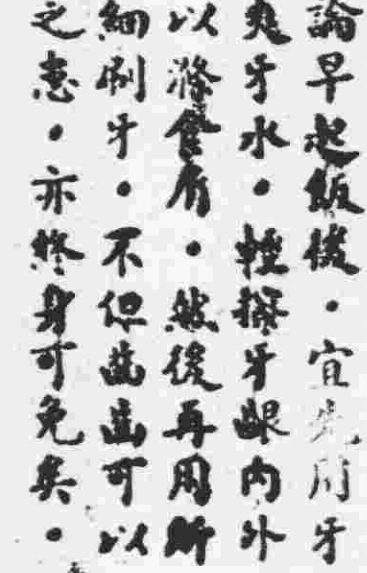 論早起飯後・宜先用牙
爽牙水・輕擦牙齦內外
以滌食屑・然後再用所
細刷牙・不但齒齒可以
之患・亦終身可免矣・